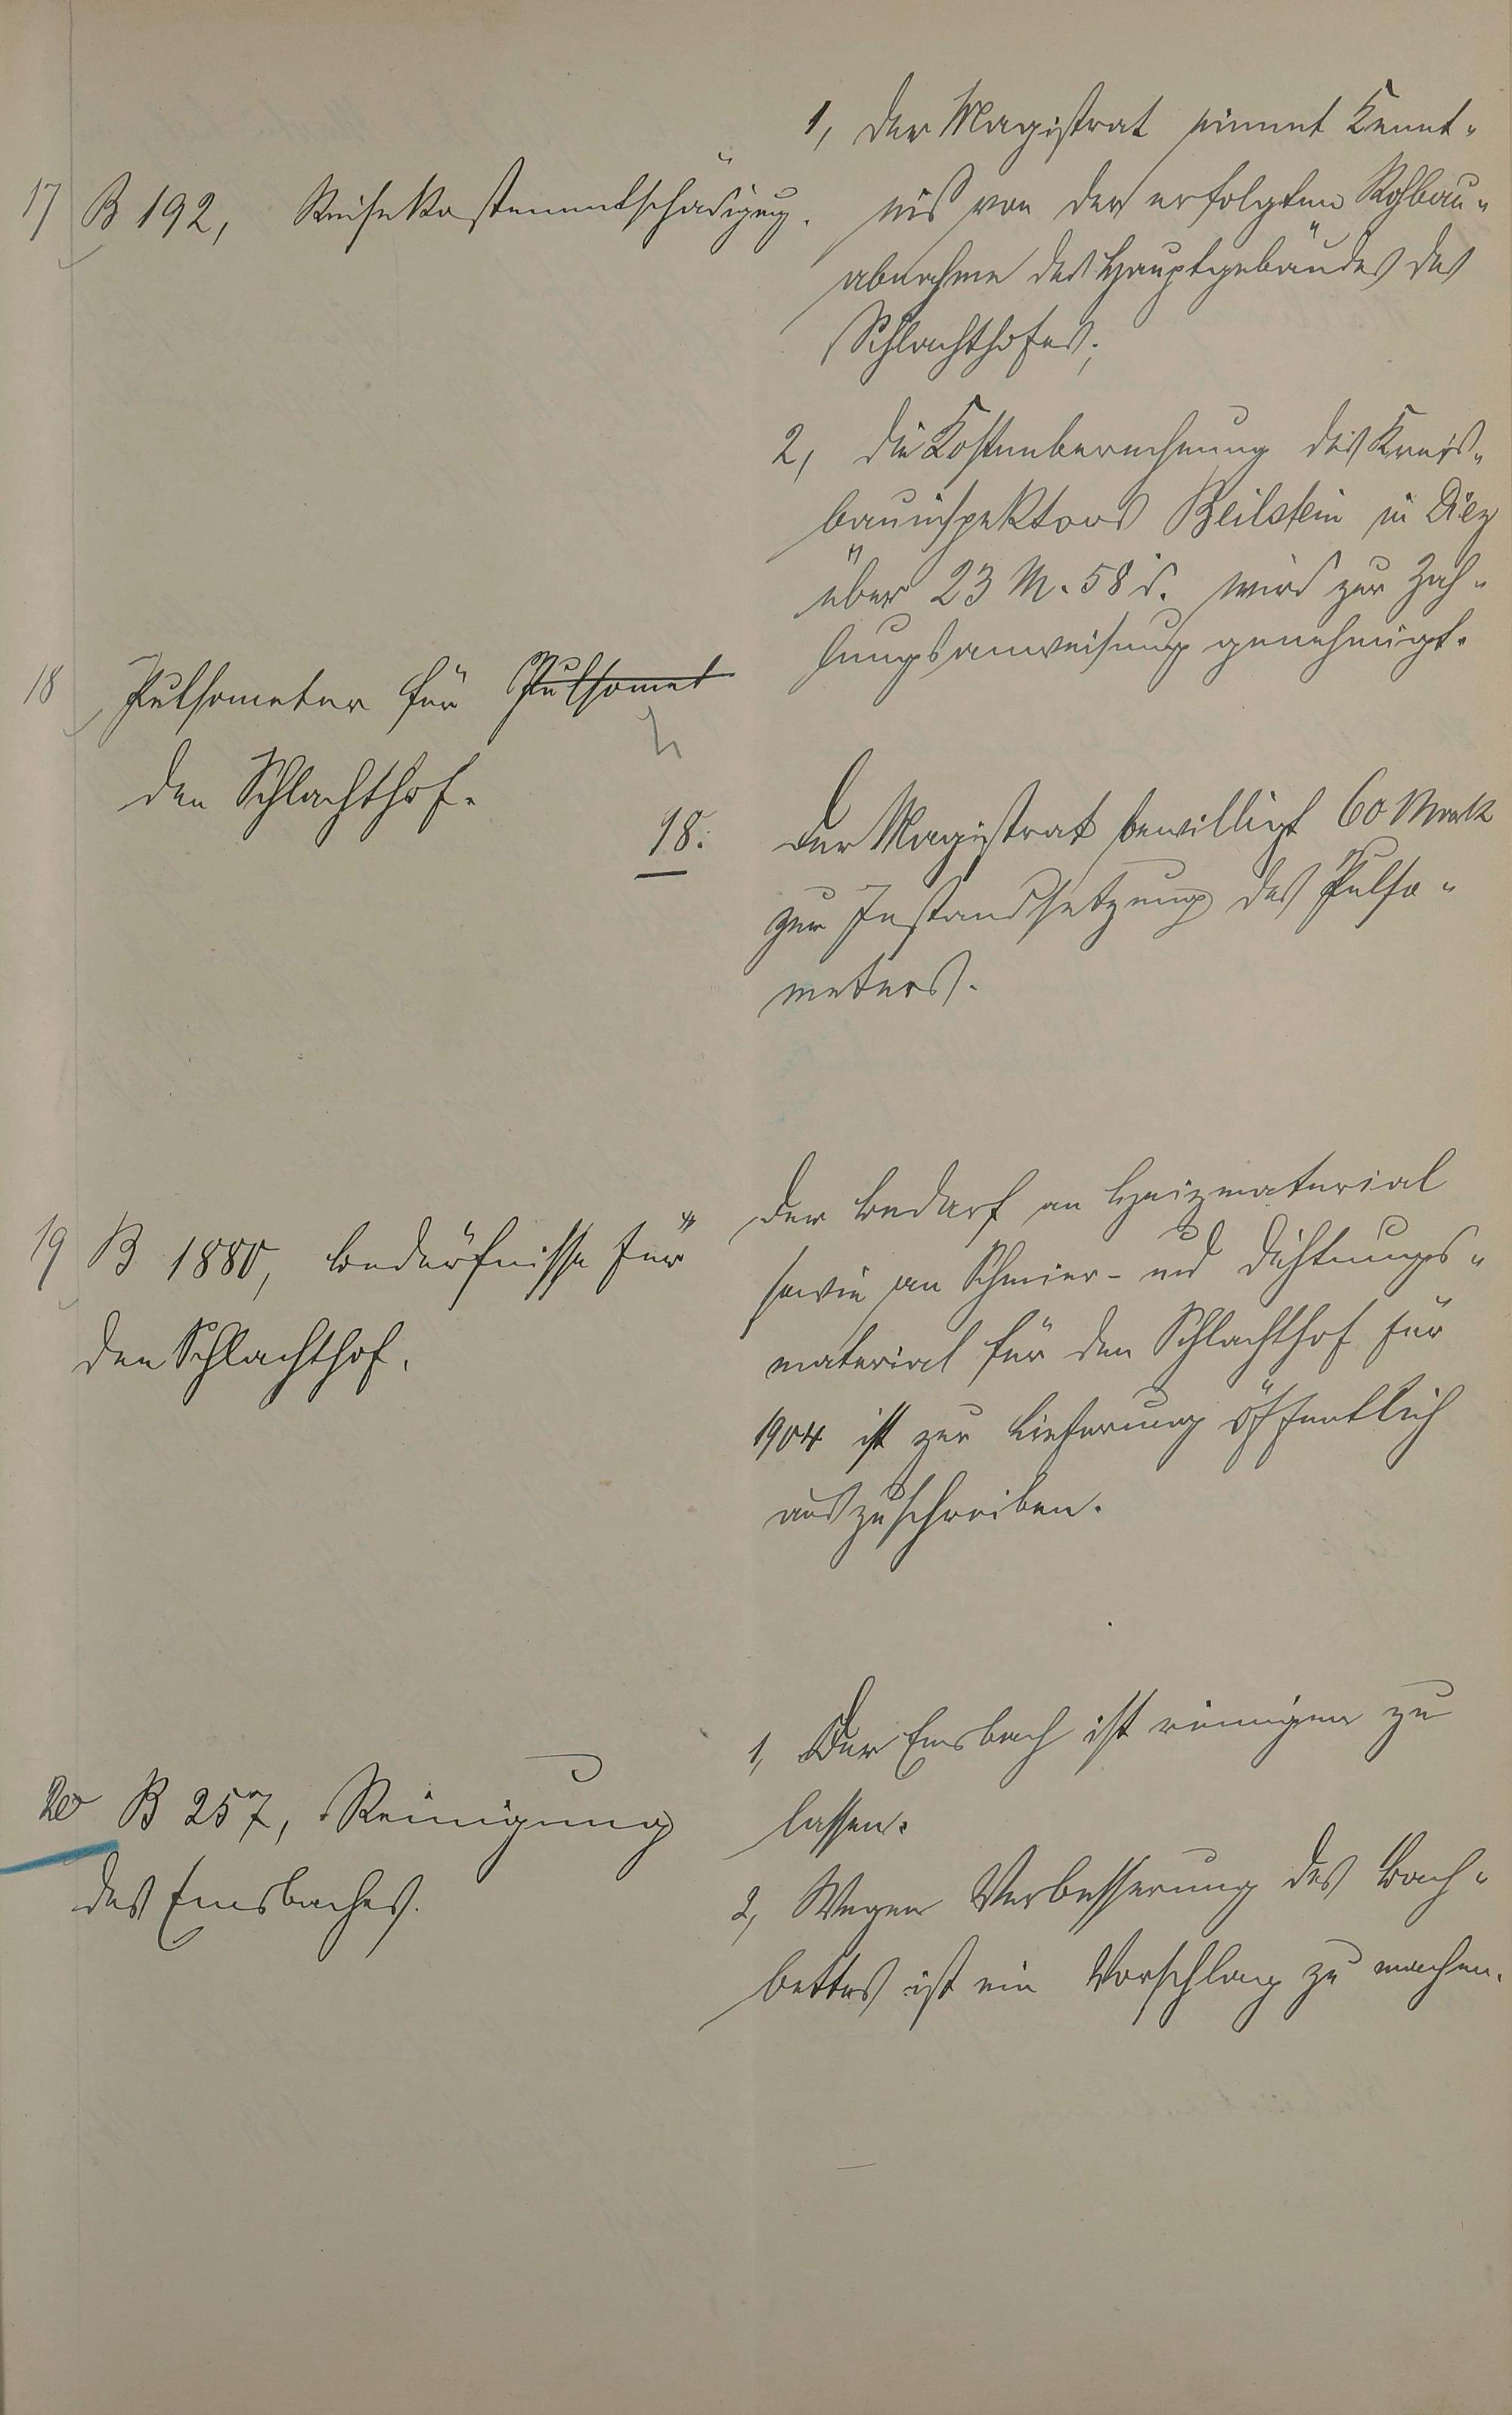 17 B 192, Reisekostenentschädigung.
1, Der Magistrat nimmt Kennt-
nis von der erfolgten Rohbau-
abnahme des Hauptgebäudes des
Schlachthofes;
2, die Kostenberechnung des Kreis-
bauinspektors Beilstein in Diez
über 23 M. 58 d. wird zur Zah-
lungsanweisung genehmigt.
18 Pulsometer für Pulsomet
den Schlachthof.
18. Der Magistrat bewilligt 60 Mark
zur Instandsetzung des Pulso-
meters.
19 B 1880, Bedürfnisse für
den Schlachthof.
Der Bedarf an Heizmaterial
sowie an Schmier- und Dichtungs-
material für den Schlachthof für
1904 ist zur Lieferung öffentlich
auszuschreiben.
20 B 257, Reinigung
des Emsbaches.
1, Der Emsbach ist reinigen zu
lassen.
2, Wegen Verbesserung des Bach-
bettes ist ein Vorschlag zu machen.